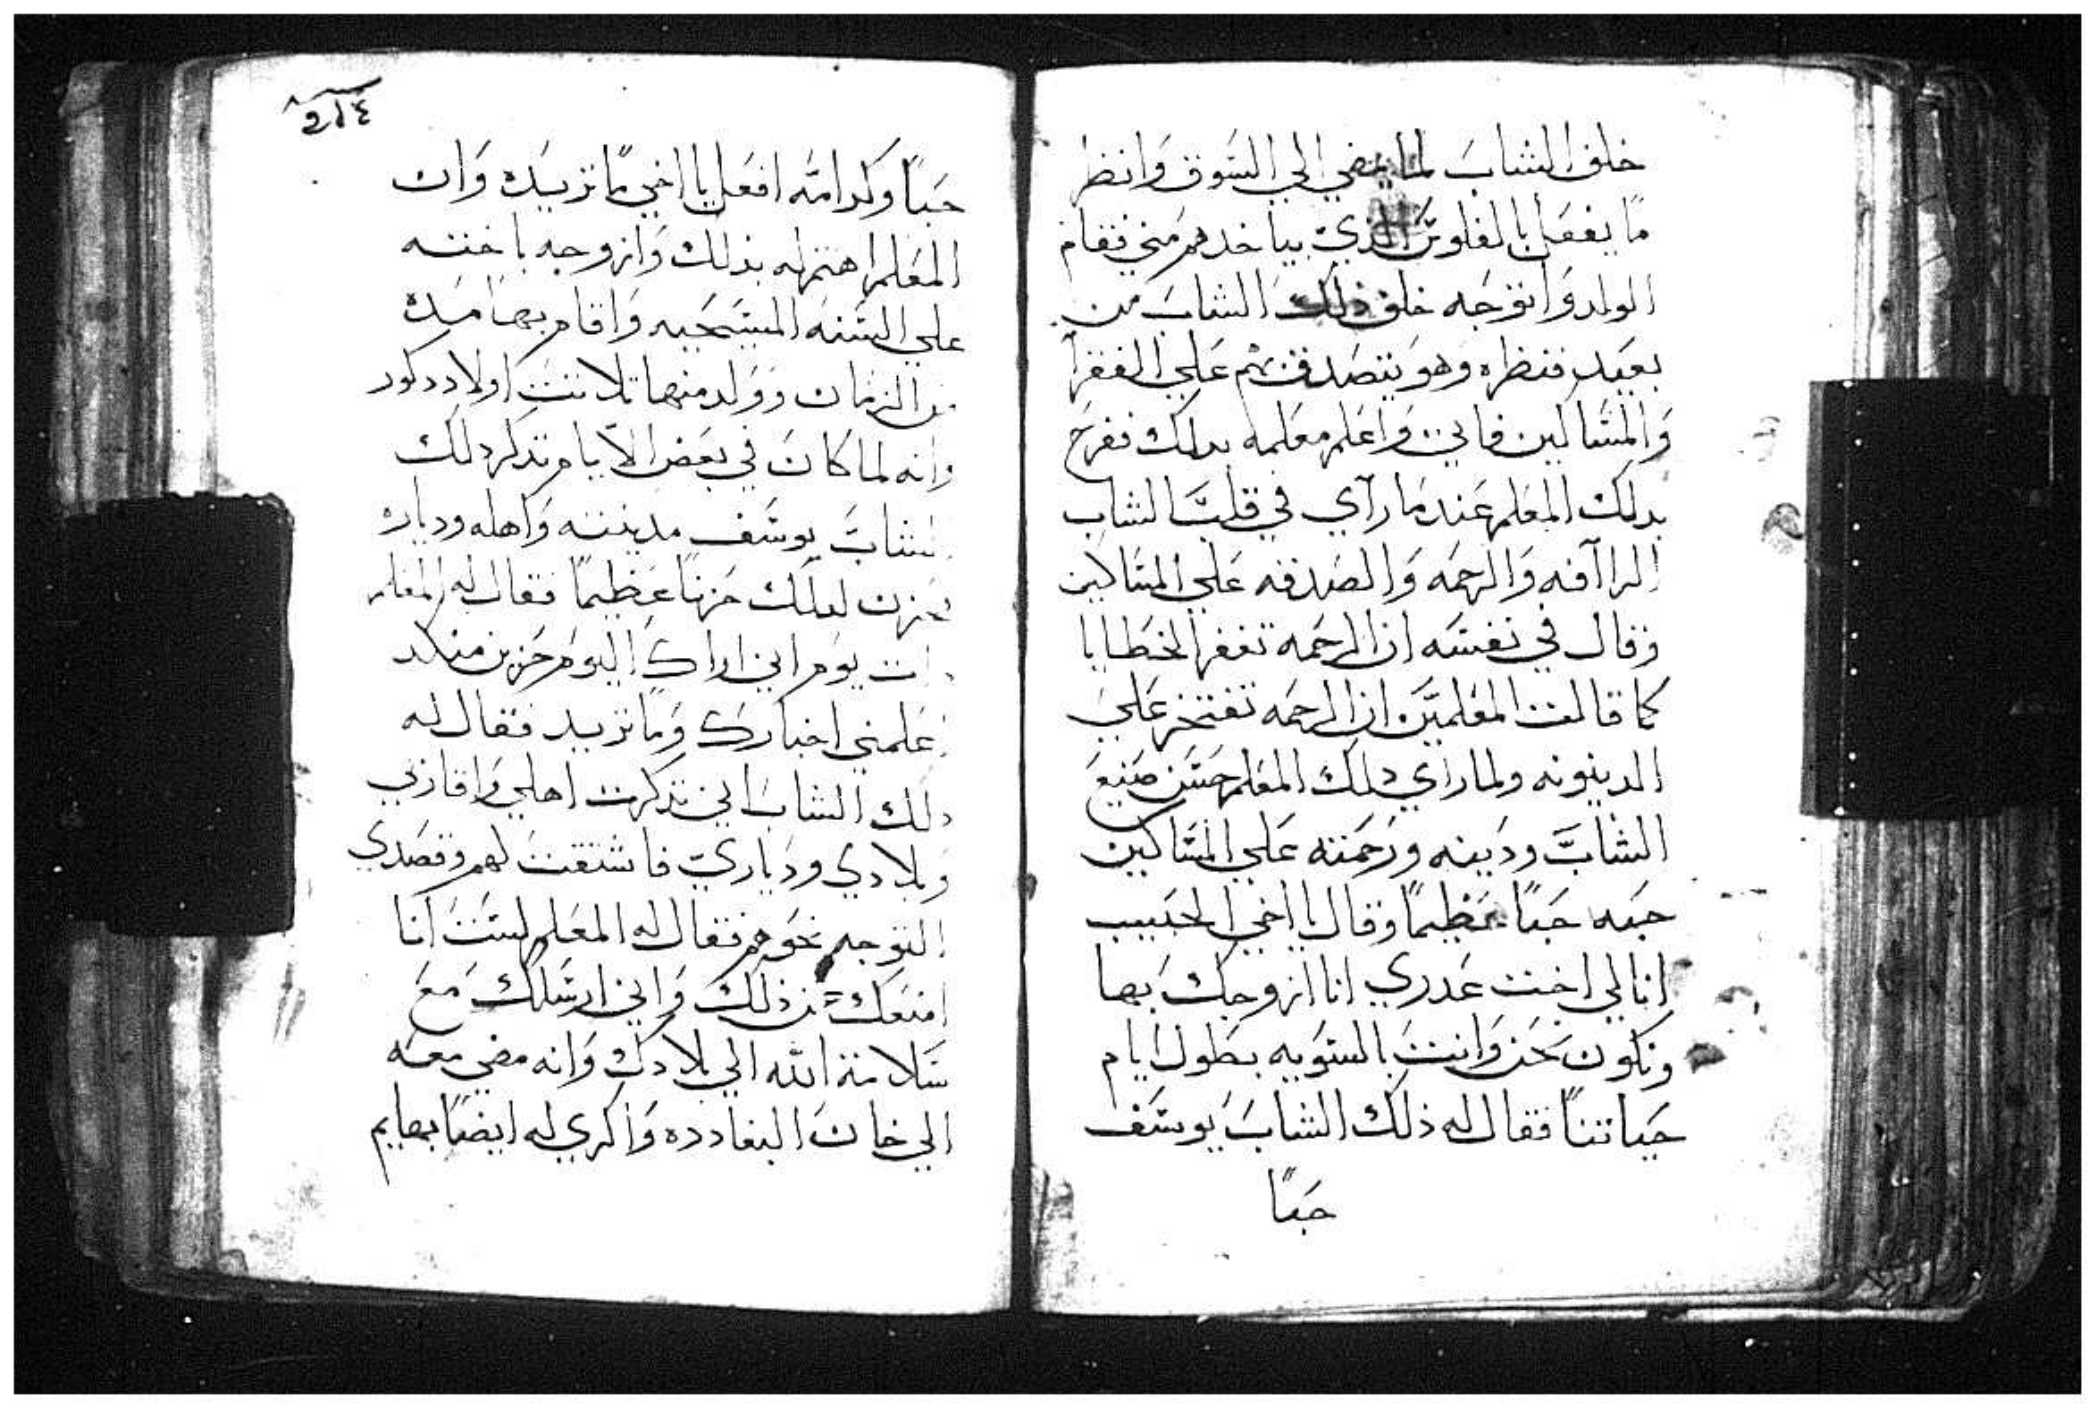 خلف الشاب لما يمضي الي السوق وانظر
ما يفعل بالفلوس الذي بياخدهم مني فقام
الولد وانوجه خلف ذلك الشاب من
بعيد فنظره وهو يتصدق بهم علي الفقرا
والمساكين فاتي واعلم معلمه بدلك ففرح
بدلك المعلم عند ما رآي في قلب الشاب
الراآفه والرحمه والصدقه علي المساكين
وقال في نفسه ان الرحمه تغفر الخطايا
كما قالت المعلمين ان الرحمه تفتخر علي
الدينونه ولما راي دلك المعلم حسن صنيع
الشاب ودينه ورحمته علي المساكين
حبه حبًا عظيمًا وقال يا اخي الحبيب
انا لي اخت عدري انا ازوجك بها
ونكون نحن وانت بالسويه بطول ايام
حياتنا فقال له ذلك الشاب يوسف
حبًا
214
حبًا وكرامه افعل يا اخي ما تريده وان
المعلم اهتم له بذلك وازوجه باخته
علي السنه المسيحيه واقام بها مده
من الزمان وولد منها تلاتت اولاد دكور
وانه لما كان في بعض الايام تدكر دلك
الشاب يوسف مدينته واهله ودياره
فحزن لدلك حزنًا عظيمًا فقال له المعلم
دات يوم اني اراك اليوم حزين منكد
اعلمني اخبارك وما تريد فقال له
دلك الشاب اني تدكرت اهلي واقاربي
وبلادي ودياري فاشتقت لهم وقصدي
التوجه نحوهم فقال له المعلم لست انا
امنعك من ذلك واني ارسلك مع
سلامة الله الي بلادك وانه مضي معه
الي خان البغادده واكري له ايضًا بهايم